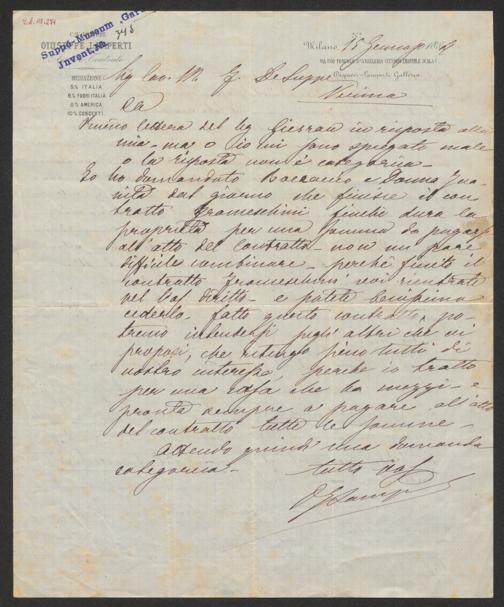 Suppé-Museum, Gar
Inventar 348
GIUSEPPE LAMPERTI
MEDIAZIONE
5% ITALIA.
8% FUORI ITALIA
8% AMERICA
10% CONCERTI.
Milano, 15 Gennajo 18
Sig Cav. M. F. De Suppé
Vienna
Ricevo lettera del Sig Giesrau in risposta alla
mia - ma o io mi sono spiegato male
o la risposta non è categorica -
Io ho domandato Boccaccio e Donna Jua-
nita dal giorno che finisce il con
tratto Franceschini finché dura la
proprietà per una somma da pagarsi
all'atto del Contratto - non mi pare
difficile combinare - perché finito il
contratto Franceschini voi rientrate
nel Vos diritto - e potete benissimo
cederlo - fatto questo contratto, po-
tremo intenderci pegli altri che vi
proposi, che ritengo pieno tutti di
vostro interesse perché io tratto
per una casa che ha mezzi - e
pronta sempre a pagare all'atto
del contratto tutte le somme -
Attendo quindi una domanda
categorica - tutto Vos